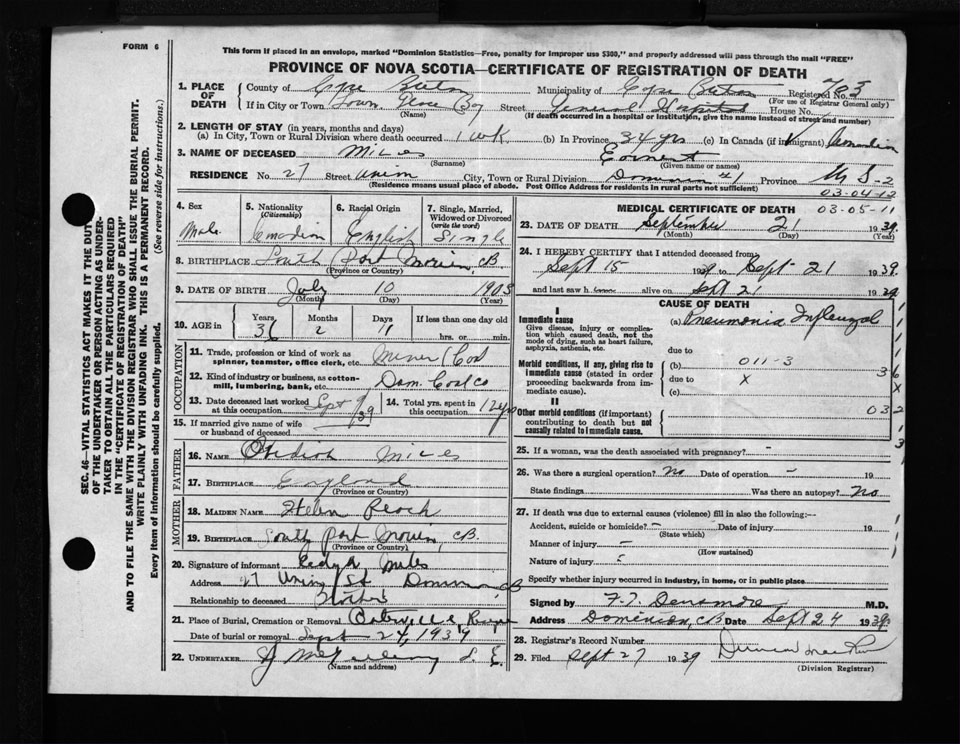 FORM 6
This form if placed in an envelope, marked "Dominion Statistics—Free, penalty for improper use $300," and properly addressed will pass through the mail "FREE"
PROVINCE OF NOVA SCOTIA—CERTIFICATE OF REGISTRATION OF DEATH
SEC. 46—VITAL STATISTICS ACT MAKES IT THE DUTY
OF THE UNDERTAKER OR PERSON ACTING AS UNDER-
TAKER TO OBTAIN ALL THE PARTICULARS REQUIRED
IN THE "CERTIFICATE OF REGISTRATION OF DEATH"
AND TO FILE THE SAME WITH THE DIVISION REGISTRAR WHO SHALL ISSUE THE BURIAL PERMIT.
WRITE PLAINLY WITH UNFADING INK. THIS IS A PERMANENT RECORD.
Every item of information should be carefully supplied. (See reverse side for instructions.)
1. PLACE OF DEATH County of Cape Breton Municipality of Cape Breton Registered No. 783
(For use of Registrar General only)
If in City or Town Town Glace Bay Street General Hospital House No.
(Name) (If death occurred in a hospital or institution, give the name instead of street and number)
2. LENGTH OF STAY (in years, months and days)
(a) In City, Town or Rural Division where death occurred 1 wk (b) In Province 34 yrs (c) In Canada (if immigrant)
3. NAME OF DECEASED Miles Earnest
(Surname) (Given name or names)
RESIDENCE No. 27 Street Union City, Town or Rural Division Dominion #1 Province N S-2
(Residence means usual place of abode. Post Office Address for residents in rural parts not sufficient)
03-04-12
4. Sex 5. Nationality (Citizenship) 6. Racial Origin 7. Single, Married, Widowed or Divorced (write the word)
Male Canadian English Single
8. BIRTHPLACE South Port Morien CB
(Province or Country)
9. DATE OF BIRTH July 10 1903
(Month) (Day) (Year)
10. AGE in Years Months Days If less than one day old
36 2 11 hrs. or min.
OCCUPATION
11. Trade, profession or kind of work as spinner, teamster, office clerk, etc. Miner (Coal
12. Kind of industry or business, as cotton-mill, lumbering, bank, etc. Dom. Coal Co
13. Date deceased last worked at this occupation Sept 9/39 14. Total yrs. spent in this occupation 12 yrs
15. If married give name of wife or husband of deceased
FATHER
16. NAME Miles
17. BIRTHPLACE England
(Province or Country)
MOTHER
18. MAIDEN NAME Helen Peach
19. BIRTHPLACE South Port Morien, CB.
(Province or Country)
20. Signature of informant Miles
Address 27 Union St Dominion CB
Relationship to deceased
21. Place of Burial, Cremation or Removal
Date of burial or removal Sept 24, 1939
22. UNDERTAKER
(Name and address)
MEDICAL CERTIFICATE OF DEATH 03-05-11
23. DATE OF DEATH September 21 1939.
(Month) (Day) (Year)
24. I HEREBY CERTIFY that I attended deceased from
Sept 15 1939 to Sept 21 1939.
and last saw h alive on Sept 21 1939
CAUSE OF DEATH
I
Immediate cause (a) Pneumonia Influenzal
Give disease, injury or complication which caused death, not the mode of dying, such as heart failure, asphyxia, asthenia, etc.
due to
011-3
Morbid conditions, if any, giving rise to immediate cause (stated in order proceeding backwards from immediate cause).
(b) due to X
(c)
II
Other morbid conditions (if important) contributing to death but not causally related to immediate cause.
032
25. If a woman, was the death associated with pregnancy? -
26. Was there a surgical operation? No Date of operation - 19
State findings Was there an autopsy? No
27. If death was due to external causes (violence) fill in also the following:—
Accident, suicide or homicide? - Date of injury 19
(State which)
Manner of injury -
(How sustained)
Nature of injury -
Specify whether injury occurred in industry, in home, or in public place
Signed by F. T. Densmore M.D.
Address Dominion, CB Date Sept 24 1939
28. Registrar's Record Number
29. Filed Sept 27 1939
(Division Registrar)